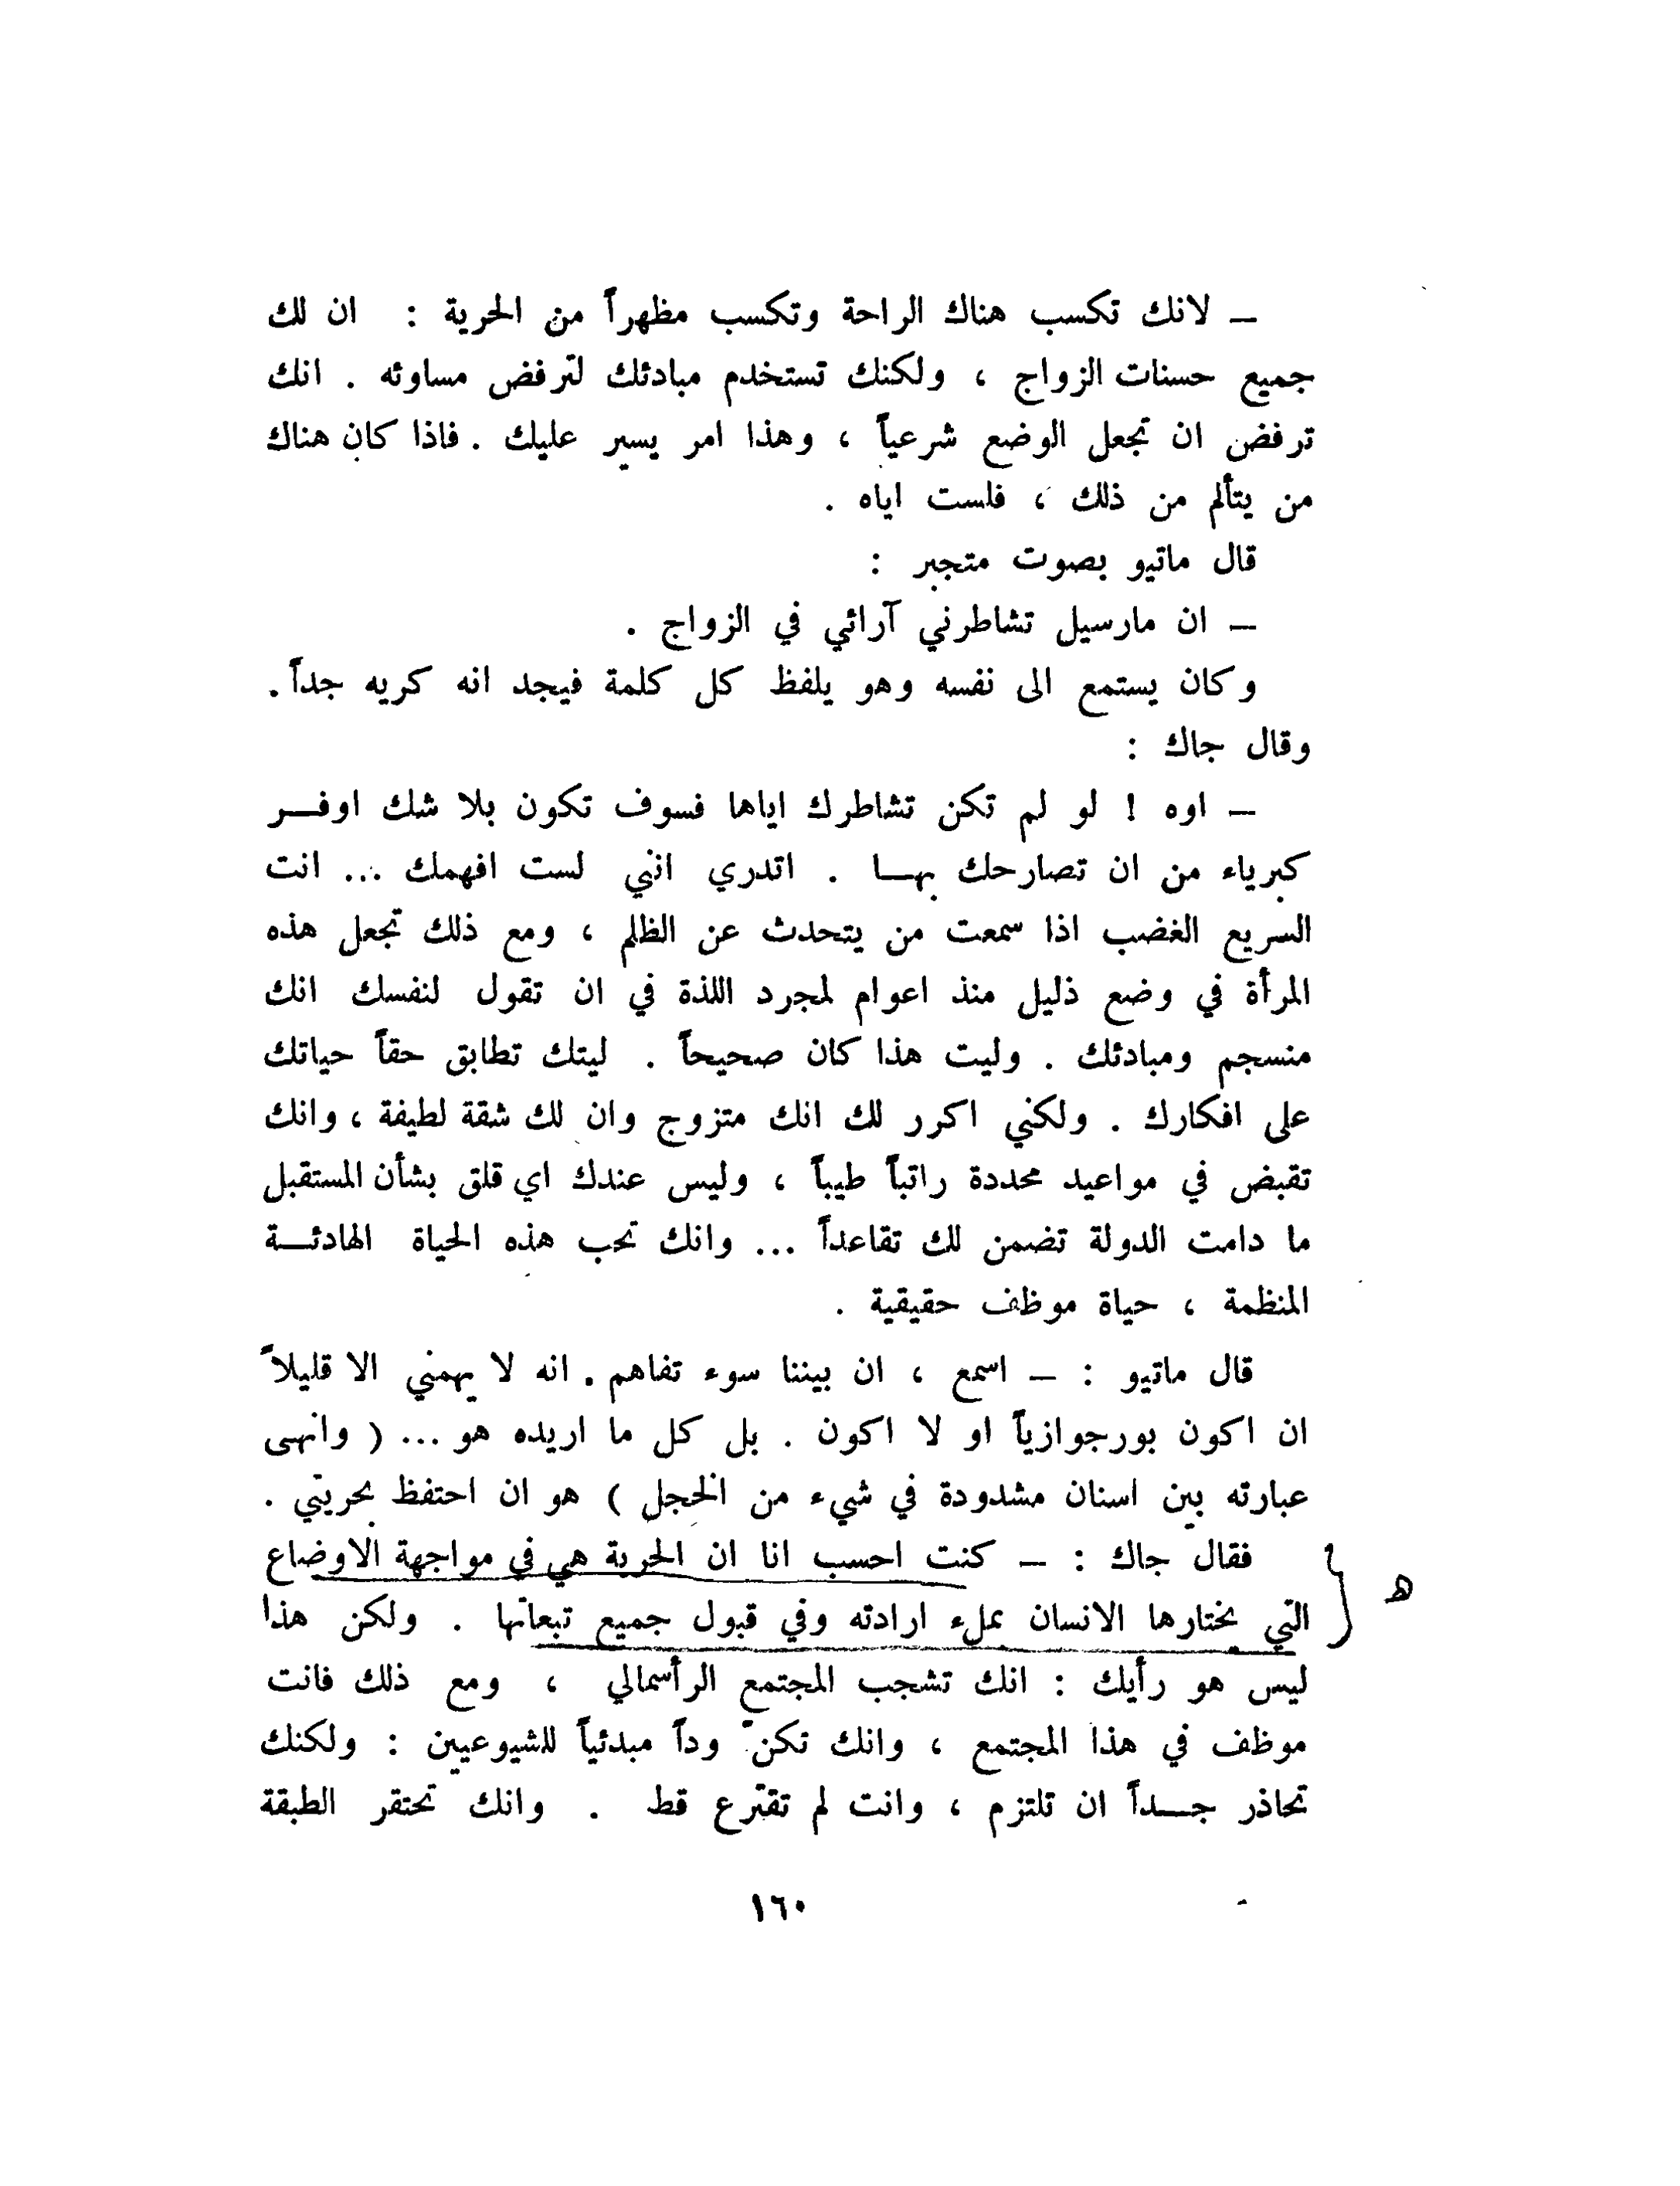 – لانك تكسب هناك الراحة وتكسب مظهراً من الحرية : ان لك
جميع حسنات الزواج ، ولكنك تستخدم مبادئك لترفض مساوئه . انك
ترفض ان تجعل الوضع شرعياً ، وهذا امر يسير عليك . فاذا كان هناك
من يتألم من ذلك ، فلست اياه .
قال ماتيو بصوت متجبر :
– ان مارسيل تشاطرني آرائي في الزواج .
وكان يستمع الى نفسه وهو يلفظ كل كلمة فيجد انه كريه جداً .
وقال جاك :
– اوه ! لو لم تكن تشاطرك اياها فسوف تكون بلا شك اوفـــر
كبرياء من ان تصارحك بهــا . اتدري انني لست افهمك ... انت
السريع الغضب اذا سمعت من يتحدث عن الظلم ، ومع ذلك تجعل هذه
المرأة في وضع ذليل منذ اعوام لمجرد اللذة في ان تقول لنفسك انك
منسجم ومبادئك . وليت هذا كان صحيحاً . ليتك تطابق حقاً حياتك
على افكارك . ولكني اكرر لك انك متزوج وان لك شقة لطيفة ، وانك
تقبض في مواعيد محددة راتباً طيباً ، وليس عندك اي قلق بشأن المستقبل
ما دامت الدولة تضمن لك تقاعداً ... وانك تحب هذه الحياة الهادئــة
المنظمة ، حياة موظف حقيقية .
قال ماتيو : – اسمع ، ان بيننا سوء تفاهم . انه لا يهمني الا قليلاً
ان اكون بورجوازياً او لا اكون . بل كل ما اريده هو ... ( وانهى
عبارته بين اسنان مشدودة في شيء من الخجل ) هو ان احتفظ بحريتي .
فقال جاك : – كنت احسب انا ان الحرية هي في مواجهة الاوضاع
ه
التي يختارها الانسان بملء ارادته وفي قبول جميع تبعاتها . ولكن هذا
ليس هو رأيك : انك تشجب المجتمع الرأسمالي ، ومع ذلك فانت
موظف في هذا المجتمع ، وانك تكنّ وداً مبدئياً للشيوعيين : ولكنك
تحاذر جــداً ان تلتزم ، وانت لم تقترع قط . وانك تحتقر الطبقة
١٦٠